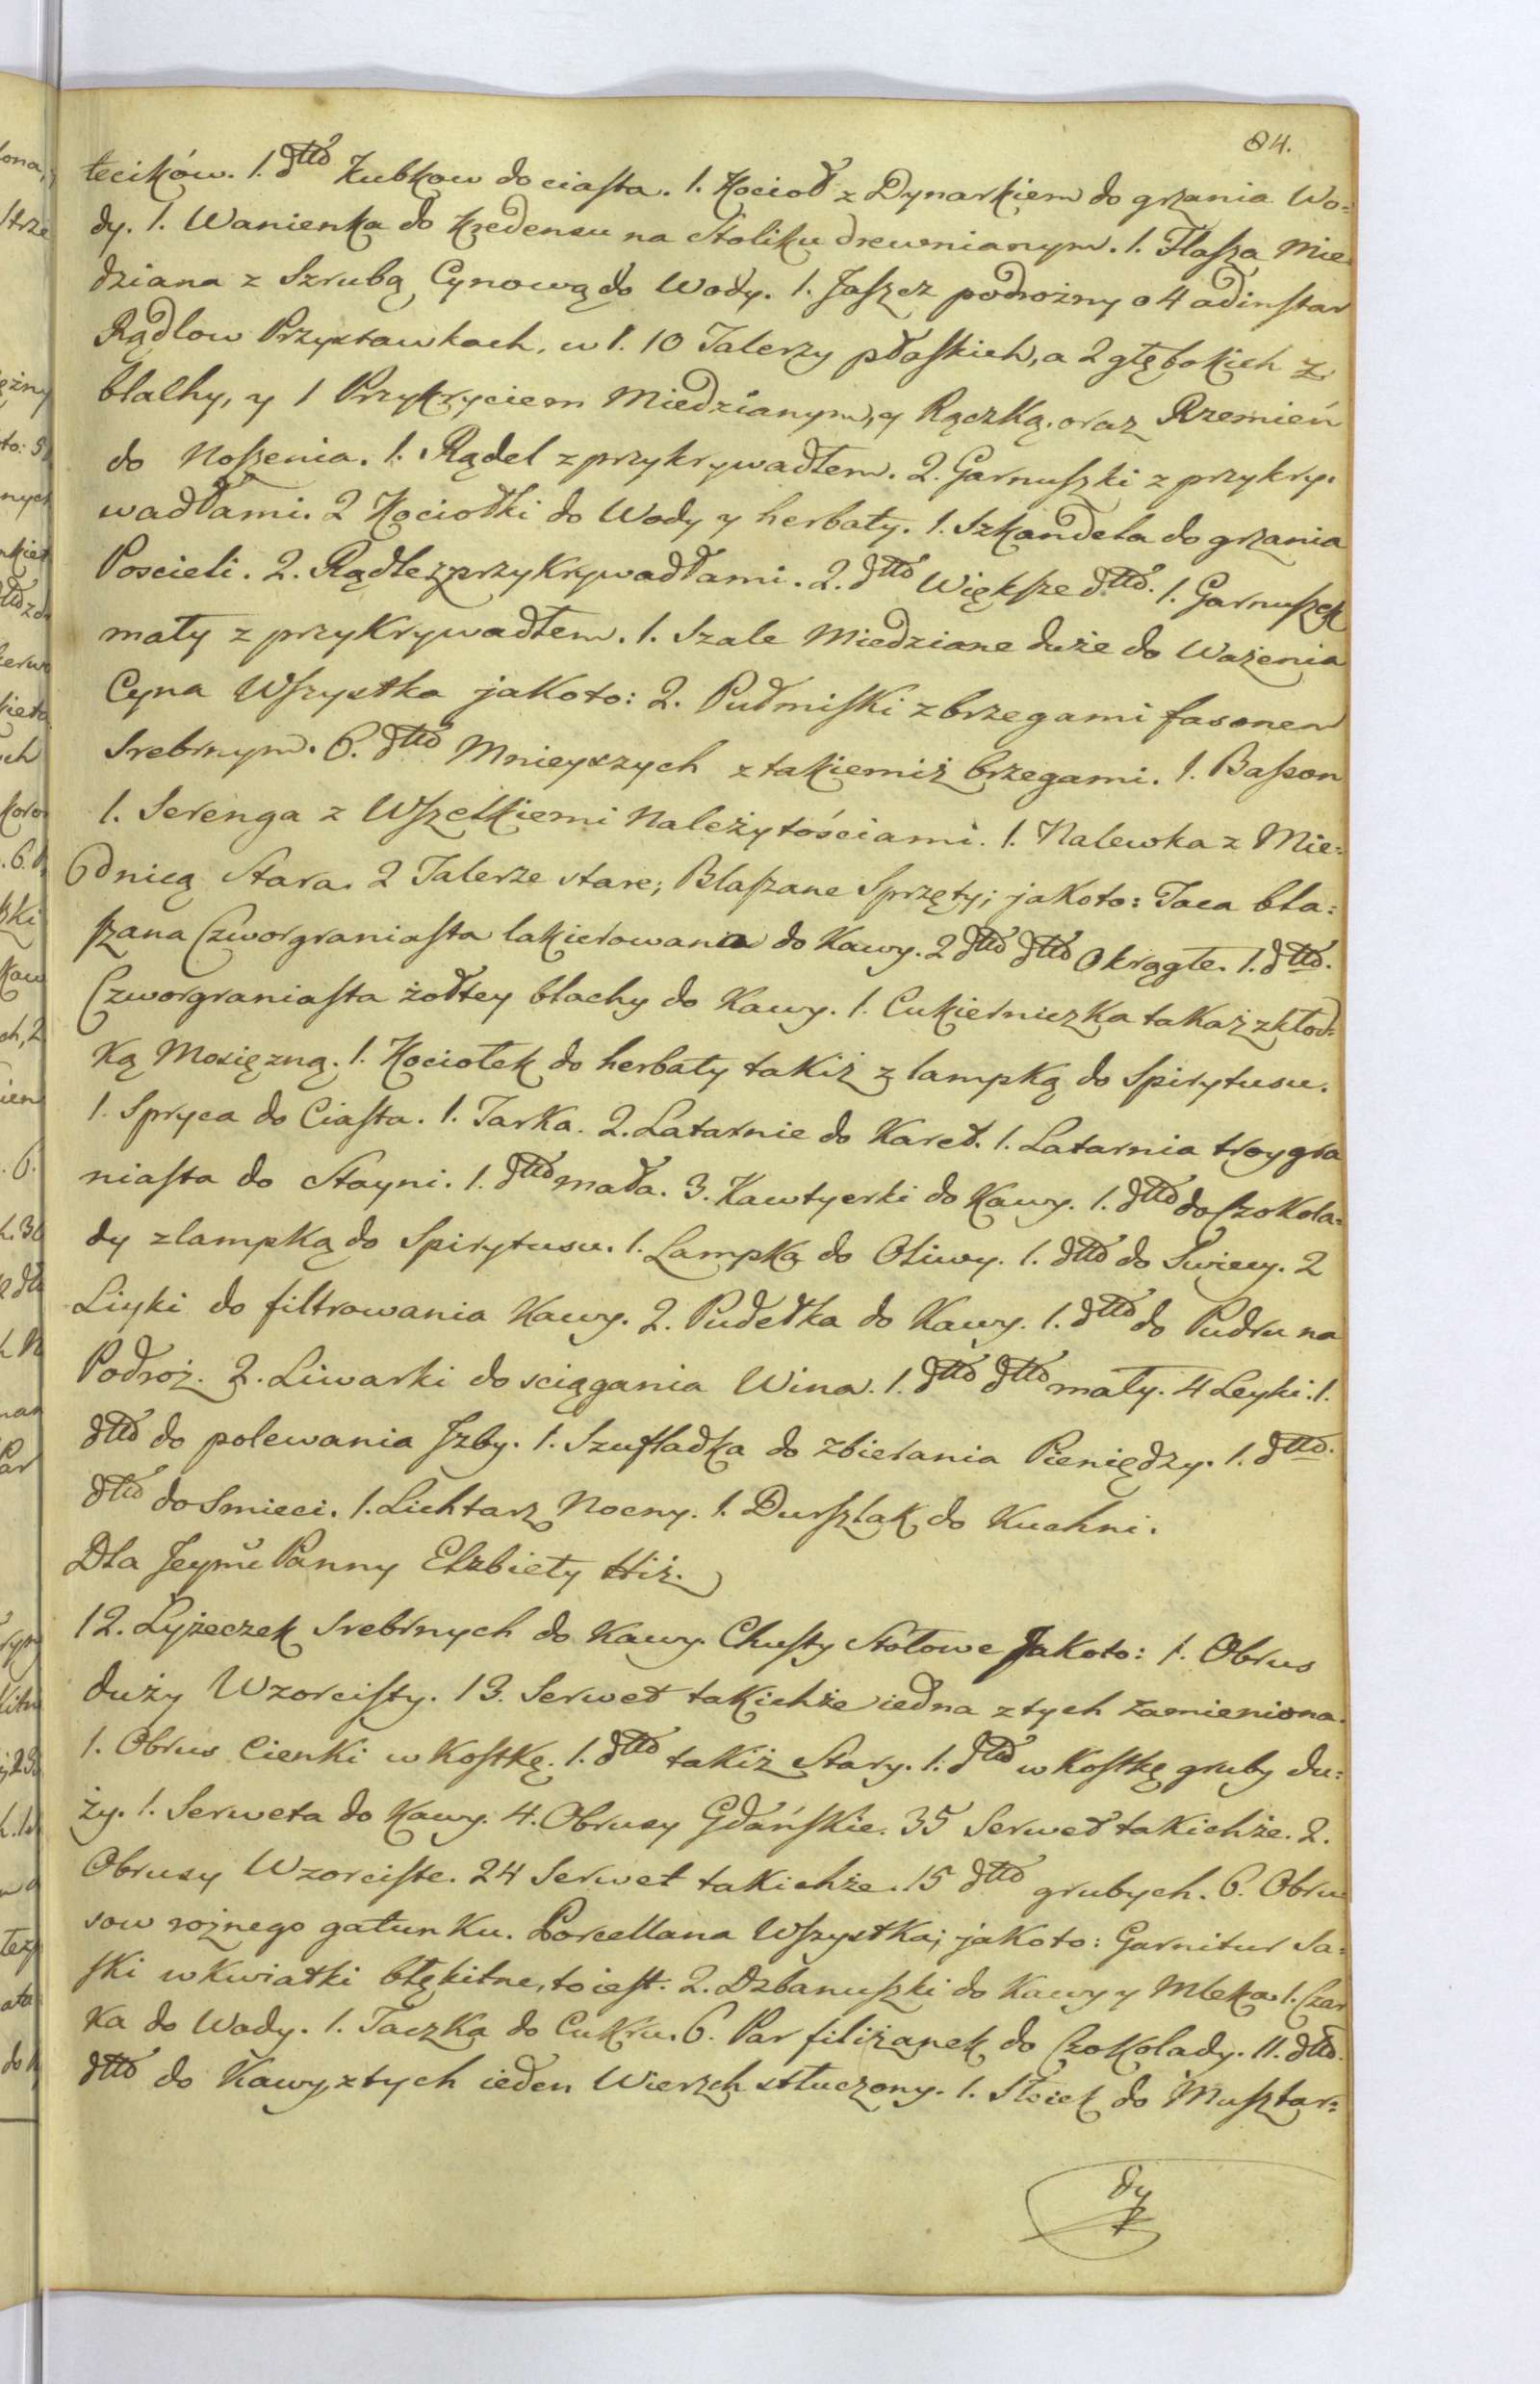 84.
łecików. 1. dtto Kubkow do ciasta. 1. Kocioł z Dynarkiem do grzania Wo=
dy. 1. Wanienka do Kredensu na Stoliku drewnianym. 1. Flasza Mie
dziana z Szrubą Cynową do Wody. 1. Jaszcz podrożny o 4 adinstar
Rądlow Przystawkach, w 1. 10 Talerzy płaskich, a 2 głębokich z
blalhy, y 1 Przykryciem Miedzianym, y Rączką. oraz Rzemień
do Noszenia. 1. Rądel z przykrywadłem. 2. Garnuszki z przykry=
wadłami. 2 Kociołki do Wody y herbaty. 1. Szkandela do grzania
Poscieli. 2. Rądle z przykrywadłami. 2. dtto Większe dtto. 1. Garnuszek
mały z przykrywadłem. 1. Szale Miedziane duże do Ważenia
Cyna Wszystka jakoto: 2. Pułmiski z brzegami fasonem
Srebrnym. 6. dtto Mnieyszych z takiemiż brzegami. 1. Basson
1. Serenga z Wszelkiemi Należytościami. 1. Nalewka z Mie=
dnicą Stara. 2 Talerze stare; Blaszane Sprzęty; jakoto: Taca bla=
szana Czworgraniasta lakierowana do Kawy. 2 dtto dtto Okrągłe. 1. dtto.
Czworgraniasta żołtey blachy do Kawy. 1. Cukierniczka takaż z kłod=
ką Mosiężną. 1. Kociołek do herbaty takiż z lampką do Spirytusu.
1. Spryca do Ciasta. 1. Tarka. 2. Latarnie do Karet. 1. Latarnia troygra
niasta do Stayni. 1. dtto mała. 3. Kawtyerki do Kawy. 1. dtto do Czokola=
dy z lampką do Spirytusu. 1. Lampka do Oliwy. 1. dtto do Swiecy. 2
Liyki do filtrowania Kawy. 2. Pudełka do Kawy. 1. dtto do Pudru na
Podroż. 2. Liwarki do sciągania Wina. 1. dtto dtto mały. 4 Leyki. 1.
dtto do polewania Jzby. 1. Szufladka do zbierania Pieniędzy. 1. dtto.
dtto do Smieci. 1. Lichtarz Nocny. 1. Durszlak do Kuchni.
Dla Jeymć Panny Elżbiety Hiż.
12. Łyżeczek Srebrnych do Kawy. Chusty Stołowe Jakoto: 1. Obrus
duży Wzorcisty. 13. Serwet takichże iedna z tych zamieniona.
1. Obrus Cienki w Kostkę. 1. dtto takiż Stary. 1. dtto w Kostkę gruby du=
ży. 1. Serweta do Kawy. 4. Obrusy Gdańskie. 35 Serwet takichże. 2.
Obrusy Wzorciste. 24 Serwet takichże. 15 dtto grubych. 6. Obru
sow rożnego gatunku. Porcellana Wszystka; jakoto: Garnitur Sa=
ski w Kwiatki błękitne, to iest. 2. Dzbanuszki do Kawy y Mleka. 1. Czar
ka do Wody. 1. Taczka do Cukru. 6. Par filiżanek do Czokolady. 11. dtto.
dtto do Kawy, z tych ieden Wierzch stłuczony. 1. Słoiek do Musztar=
dy